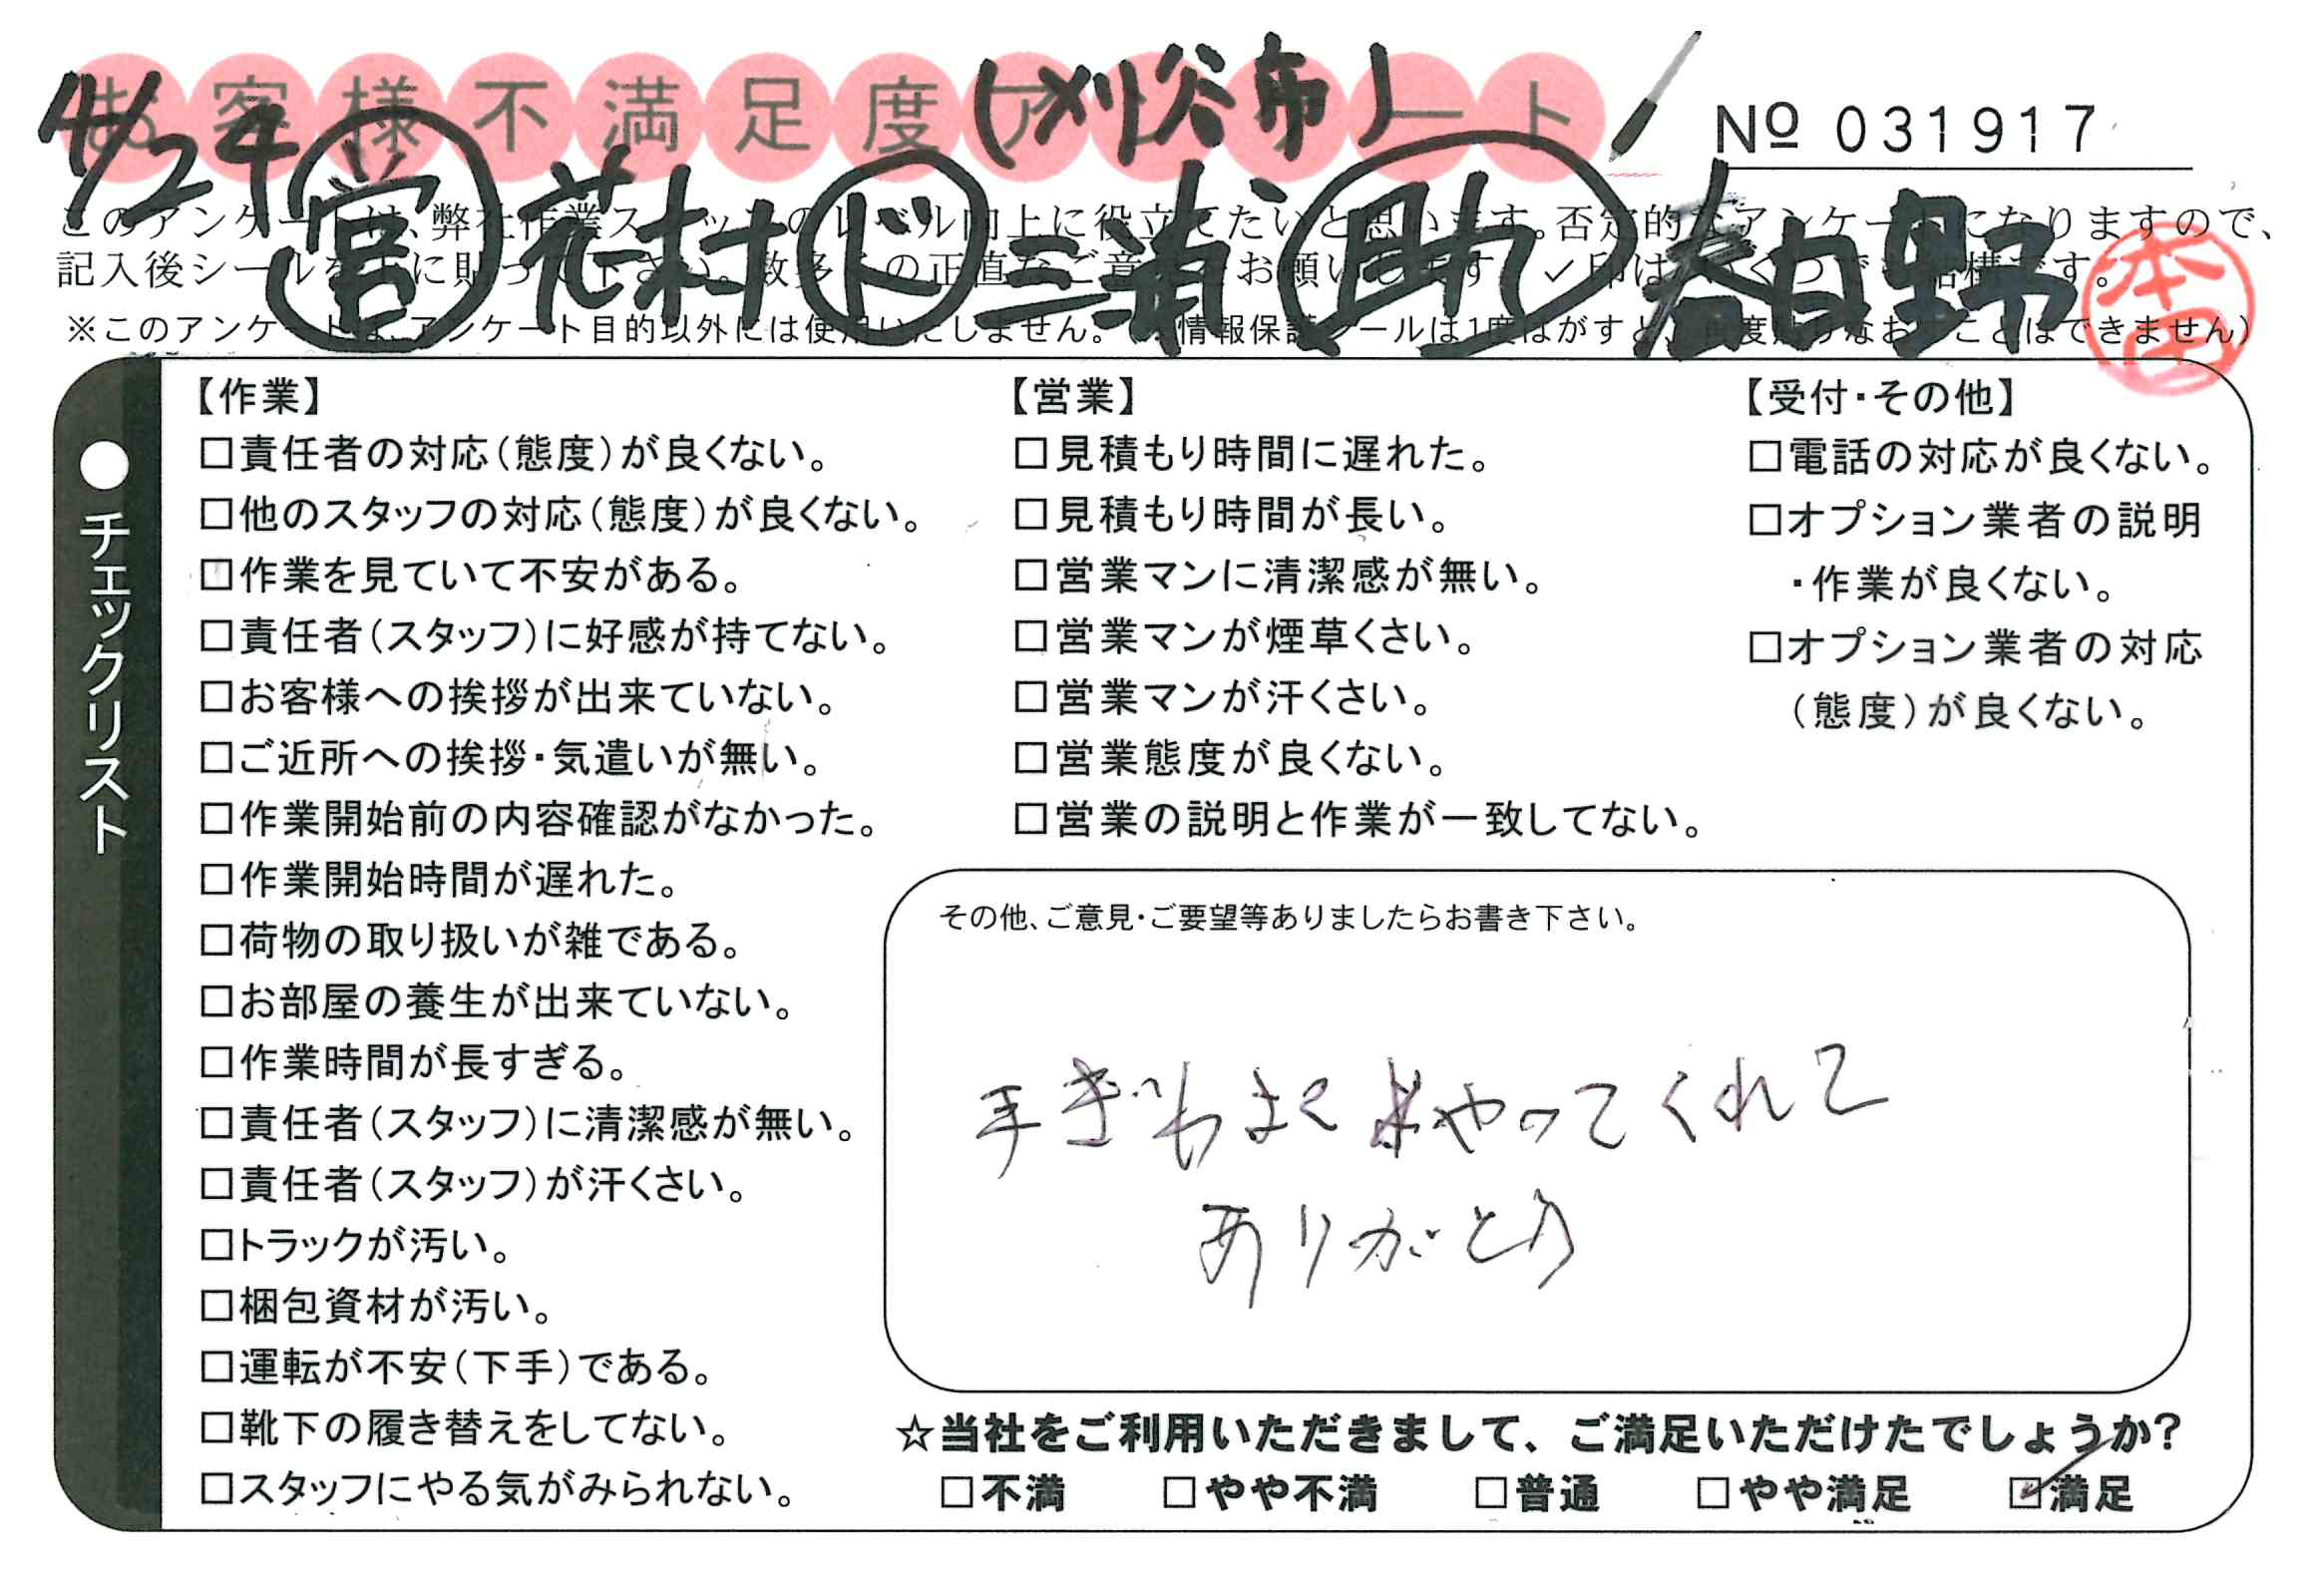 お客様不満足度アンケート
(刈谷市)
№ 031917
4/24 営 花村 ド 三浦 助 春日野
このアンケートは、弊社作業スタッフのレベル向上に役立てたいと思います。否定的なアンケートになりますので、
記入後シールを上に貼って下さい。数多くの正直なご意見をお願いします。✓印はいくつでも結構です。
※このアンケートは、アンケート目的以外には使用いたしません。(※情報保護シールは1度はがすと、再度貼りなおすことはできません)
本田
●チェックリスト
【作業】
□責任者の対応(態度)が良くない。
□他のスタッフの対応(態度)が良くない。
□作業を見ていて不安がある。
□責任者(スタッフ)に好感が持てない。
□お客様への挨拶が出来ていない。
□ご近所への挨拶・気遣いが無い。
□作業開始前の内容確認がなかった。
□作業開始時間が遅れた。
□荷物の取り扱いが雑である。
□お部屋の養生が出来ていない。
□作業時間が長すぎる。
□責任者(スタッフ)に清潔感が無い。
□責任者(スタッフ)が汗くさい。
□トラックが汚い。
□梱包資材が汚い。
□運転が不安(下手)である。
□靴下の履き替えをしてない。
□スタッフにやる気がみられない。
【営業】
□見積もり時間に遅れた。
□見積もり時間が長い。
□営業マンに清潔感が無い。
□営業マンが煙草くさい。
□営業マンが汗くさい。
□営業態度が良くない。
□営業の説明と作業が一致してない。
【受付・その他】
□電話の対応が良くない。
□オプション業者の説明
・作業が良くない。
□オプション業者の対応
(態度)が良くない。
その他、ご意見・ご要望等ありましたらお書き下さい。
手ぎわよくやってくれて
ありがとう
☆当社をご利用いただきまして、ご満足いただけたでしょうか?
□不満 □やや不満 □普通 □やや満足 ☑満足